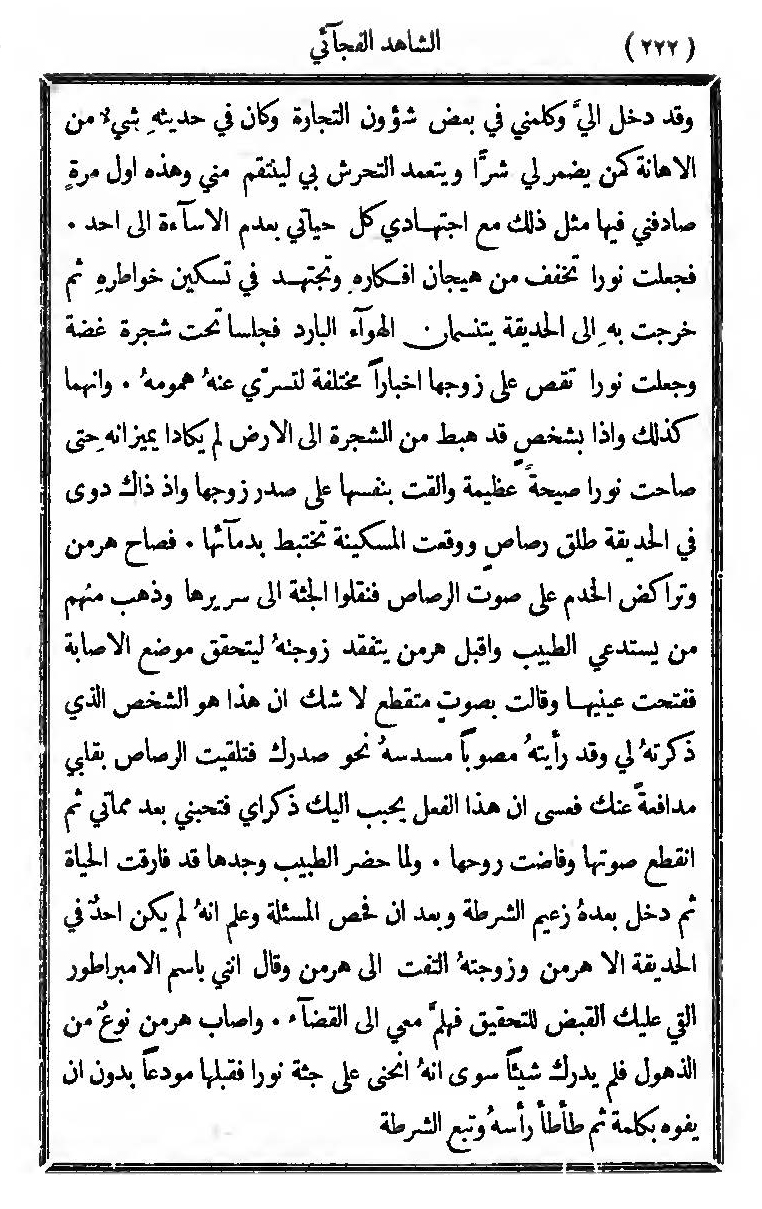 ( ٢٢٢ ) الشاهد الفجآئي
وقد دخل اليَّ وكلمني في بعض شؤون التجارة وكان في حديثهِ شيءٌ من
الاهانة كمن يضمر لي شرًّا ويتعمد التحرش بي لينتقم مني وهذه اول مرةٍ
صادفني فيها مثل ذلك مع اجتهادي كل حياتي بعدم الاسآءة الى احد ٠
فجعلت نورا تخفف من هيجان افكارهِ وتجتهد في تسكين خواطرهِ ثم
خرجت بهِ الى الحديقة يتنسمان الهوآء البارد فجلسا تحت شجرة غضة
وجعلت نورا تقص على زوجها اخباراً مختلفة لتسرّي عنهُ همومهُ ٠ وانهما
كذلك واذا بشخصٍ قد هبط من الشجرة الى الارض لم يكادا يميزانهِ حتى
صاحت نورا صيحةً عظيمة والقت بنفسها على صدر زوجها واذ ذاك دوى
في الحديقة طلق رصاصٍ ووقعت المسكينة تختبط بدمآئها ٠ فصاح هرمن
وتراكض الخدم على صوت الرصاص فنقلوا الجثة الى سريرها وذهب منهم
من يستدعي الطبيب واقبل هرمن يتفقد زوجتهُ ليتحقق موضع الاصابة
ففتحت عينيها وقالت بصوتٍ متقطع لا شك ان هذا هو الشخص الذي
ذكرتهُ لي وقد رأيتهُ مصوباً مسدسهُ نحو صدرك فتلقيت الرصاص بقلبي
مدافعةً عنك فعسى ان هذا الفعل يحبب اليك ذكراي فتحبني بعد مماتي ثم
انقطع صوتها وفاضت روحها ٠ ولما حضر الطبيب وجدها قد فارقت الحياة
ثم دخل بعدهُ زعيم الشرطة وبعد ان فحص المسئلة وعلم انهُ لم يكن احدٌ في
الحديقة الا هرمن وزوجتهُ التفت الى هرمن وقال انني باسم الامبراطور
القي عليك القبض للتحقيق فهلمَّ معي الى القضآء ٠ واصاب هرمن نوعٌ من
الذهول فلم يدرك شيئاً سوى انهُ انحنى على جثة نورا فقبلها مودعاً بدون ان
يفوه بكلمة ثم طأطأ رأسهُ وتبع الشرطة